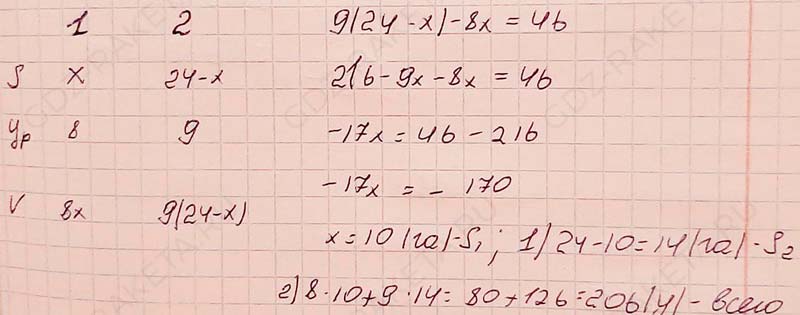 1 2 9(24-x)-8x=46
S x 24-x 216-9x-8x=46
Ур 8 9 -17x=46-216
-17x=-170
V 8x 9(24-x)
x=10(га)-S₁; 1)24-10=14(га)-S₂
2)8·10+9·14=80+126=206(ц)-всего